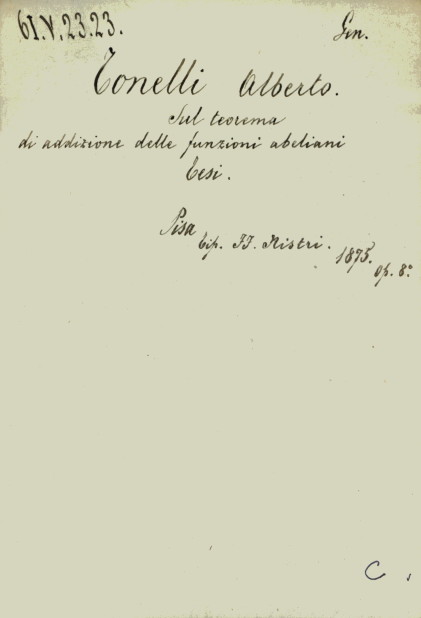 61.V.23.23.
Gen.
Tonelli Alberto.
Sul teorema
di addizione delle funzioni abeliani
Tesi.
Pisa
tip. FF. Nistri. 1875. op. 8°
C